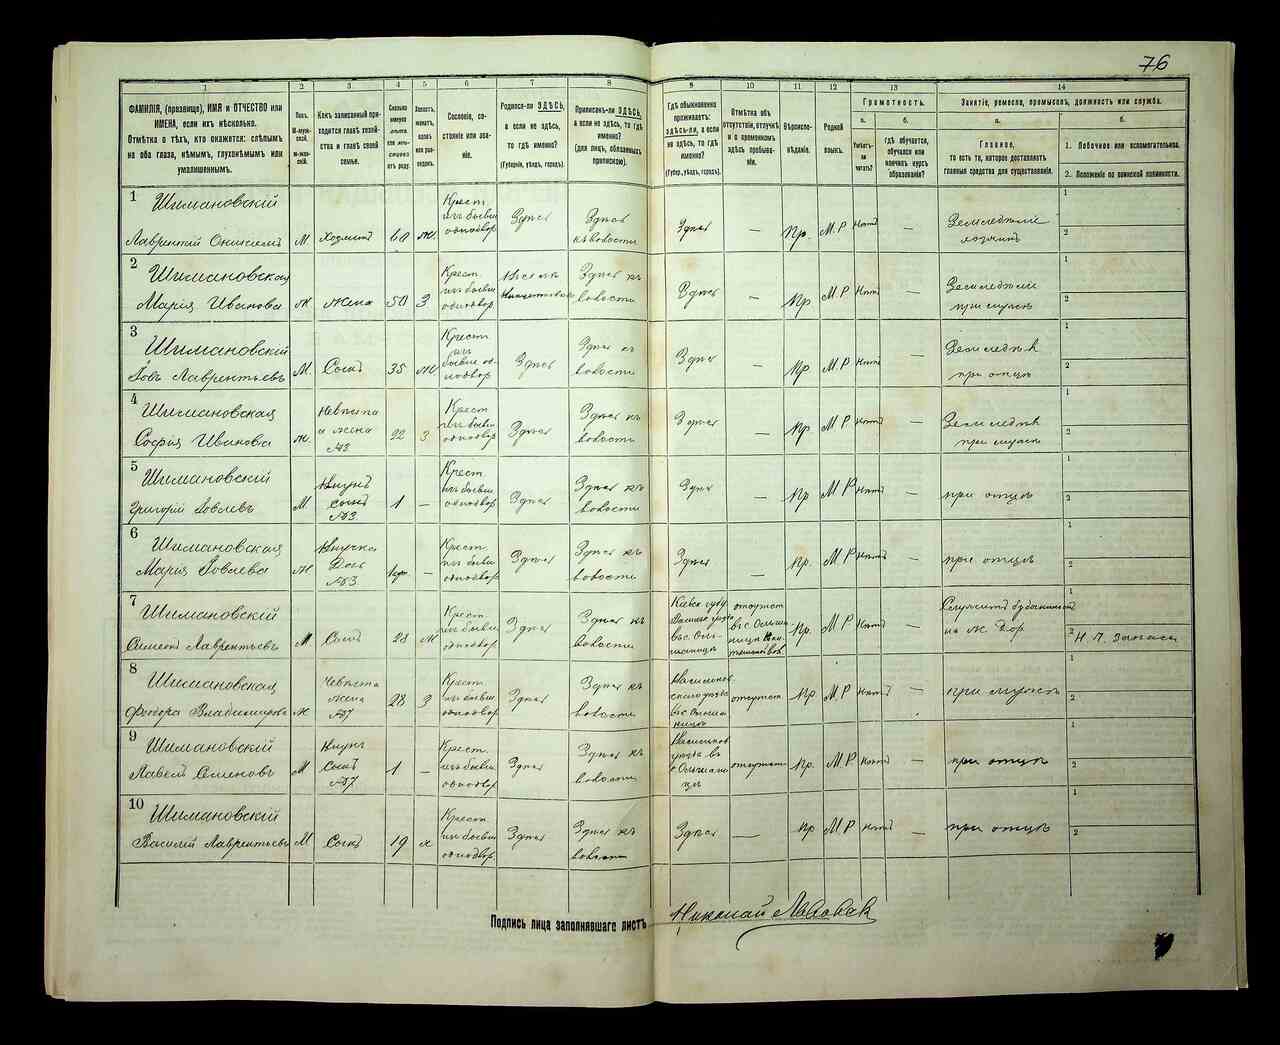 76
1
2
3
4
5
6
7
8
9
10
11
12
13
14
ФАМИЛІЯ, (прозвище), ИМЯ и ОТЧЕСТВО или
ИМЕНА, если ихъ нѣсколько.
Отмѣтка о тѣхъ, кто окажется: слѣпымъ
на оба глаза, нѣмымъ, глухонѣмымъ или
умалишеннымъ.
Полъ.
М-мужской.
Ж-женскій.
Какъ записанный приходится
главѣ хозяйства
и главѣ своей
семьи.
Сколько
минуло
лѣтъ
или мѣсяцевъ
отъ роду.
Холостъ,
женатъ,
вдовъ
или разведенъ.
Сословіе, состояніе
или званіе.
Родился-ли ЗДѢСЬ,
а если не здѣсь,
то гдѣ именно?
(Губернія, уѣздъ, городъ).
Приписанъ-ли ЗДѢСЬ,
а если не здѣсь, то гдѣ
именно?
(для лицъ, обязанныхъ
припискою).
Гдѣ обыкновенно
проживаетъ:
здѣсь-ли, а если
не здѣсь, то гдѣ
именно?
(Губер., уѣздъ, городъ).
Отмѣтка объ
отсутствіи, отлучкѣ
и о временномъ
здѣсь пребываніи.
Вѣроисповѣданіе.
Родной
языкъ.
Грамотность.
а.
б.
Умѣетъ-ли
читать?
гдѣ обучается,
обучался или
кончилъ курсъ
образованія?
Занятіе, ремесло, промыселъ, должность или служба.
а.
б.
Главное,
то есть то, которое доставляетъ
главныя средства для существованія.
1. Побочное или вспомогательное.
2. Положеніе по воинской повинности.
1 Шимановскій
Лаврентій Онисимовъ М Хозяинъ 60 ж. Крест. изъ бывш. однодвор. Здѣсь Здѣсь къ волости Здѣсь — Пр. М.Р Нѣтъ — Земледѣліе хозяинъ
2 Шимановская
Марія Иванова ж жена 50 З Крест. изъ бывш. однодвор. Здѣсь къ волости Здѣсь — Пр М.Р Нѣтъ — Земледѣліе при мужѣ
3 Шимановскій
Іовъ Лаврентьевъ М. Сынъ 35 ж Крест. изъ бывш. однодвор. Здѣсь Здѣсь къ волости Здѣсь — Пр М.Р Нѣтъ — Земледѣл. при отцѣ
4 Шимановская
Софія Иванова ж. Невѣстка и жена №3 22 З Крест. изъ бывш. однодвор. Здѣсь Здѣсь къ волости Здѣсь — Пр М.Р Нѣтъ — Земледѣл. при мужѣ
5 Шимановскій
Григорій Іовлевъ М Внукъ сынъ №3. 1 — Крест. изъ бывш. однодвор. Здѣсь Здѣсь къ волости Здѣсь — Пр М Р Нѣтъ — при отцѣ
6 Шимановская
Марія Іовлева ж Внучка Дочь №3 — Крест. изъ бывш. однодвор. Здѣсь Здѣсь къ волости Здѣсь — Пр. М Р Нѣтъ — при отцѣ
7 Шимановскій
Симеонъ Лаврентьевъ М Сынъ 28 ж Крест. изъ бывш. однодвор. Здѣсь Здѣсь къ волости Кіевск губ. въ с. Ольшаницѣ Пр. М Р Нѣтъ — Служитъ на ж. дор. 2 Н. Ч. Запаса
8 Шимановская
Феодора Владимирова ж Невѣстка жена №7 28 З Крест. изъ бывш. однодвор. Здѣсь Здѣсь къ волости Пр М Р Нѣтъ — при мужѣ
9 Шимановскій
Павелъ Семеновъ М Внукъ Сынъ №7 1 — Крест. изъ бывш. однодвор. Здѣсь Здѣсь къ волости Пр. М.Р Нѣтъ — при отцѣ
10 Шимановскій
Василій Лаврентьевъ М Сынъ 19 х Крест. изъ бывш. однодвор. Здѣсь Здѣсь къ волости Здѣсь — Пр М Р Нѣтъ — при отцѣ
Подпись лица заполнявшаго листъ Николай